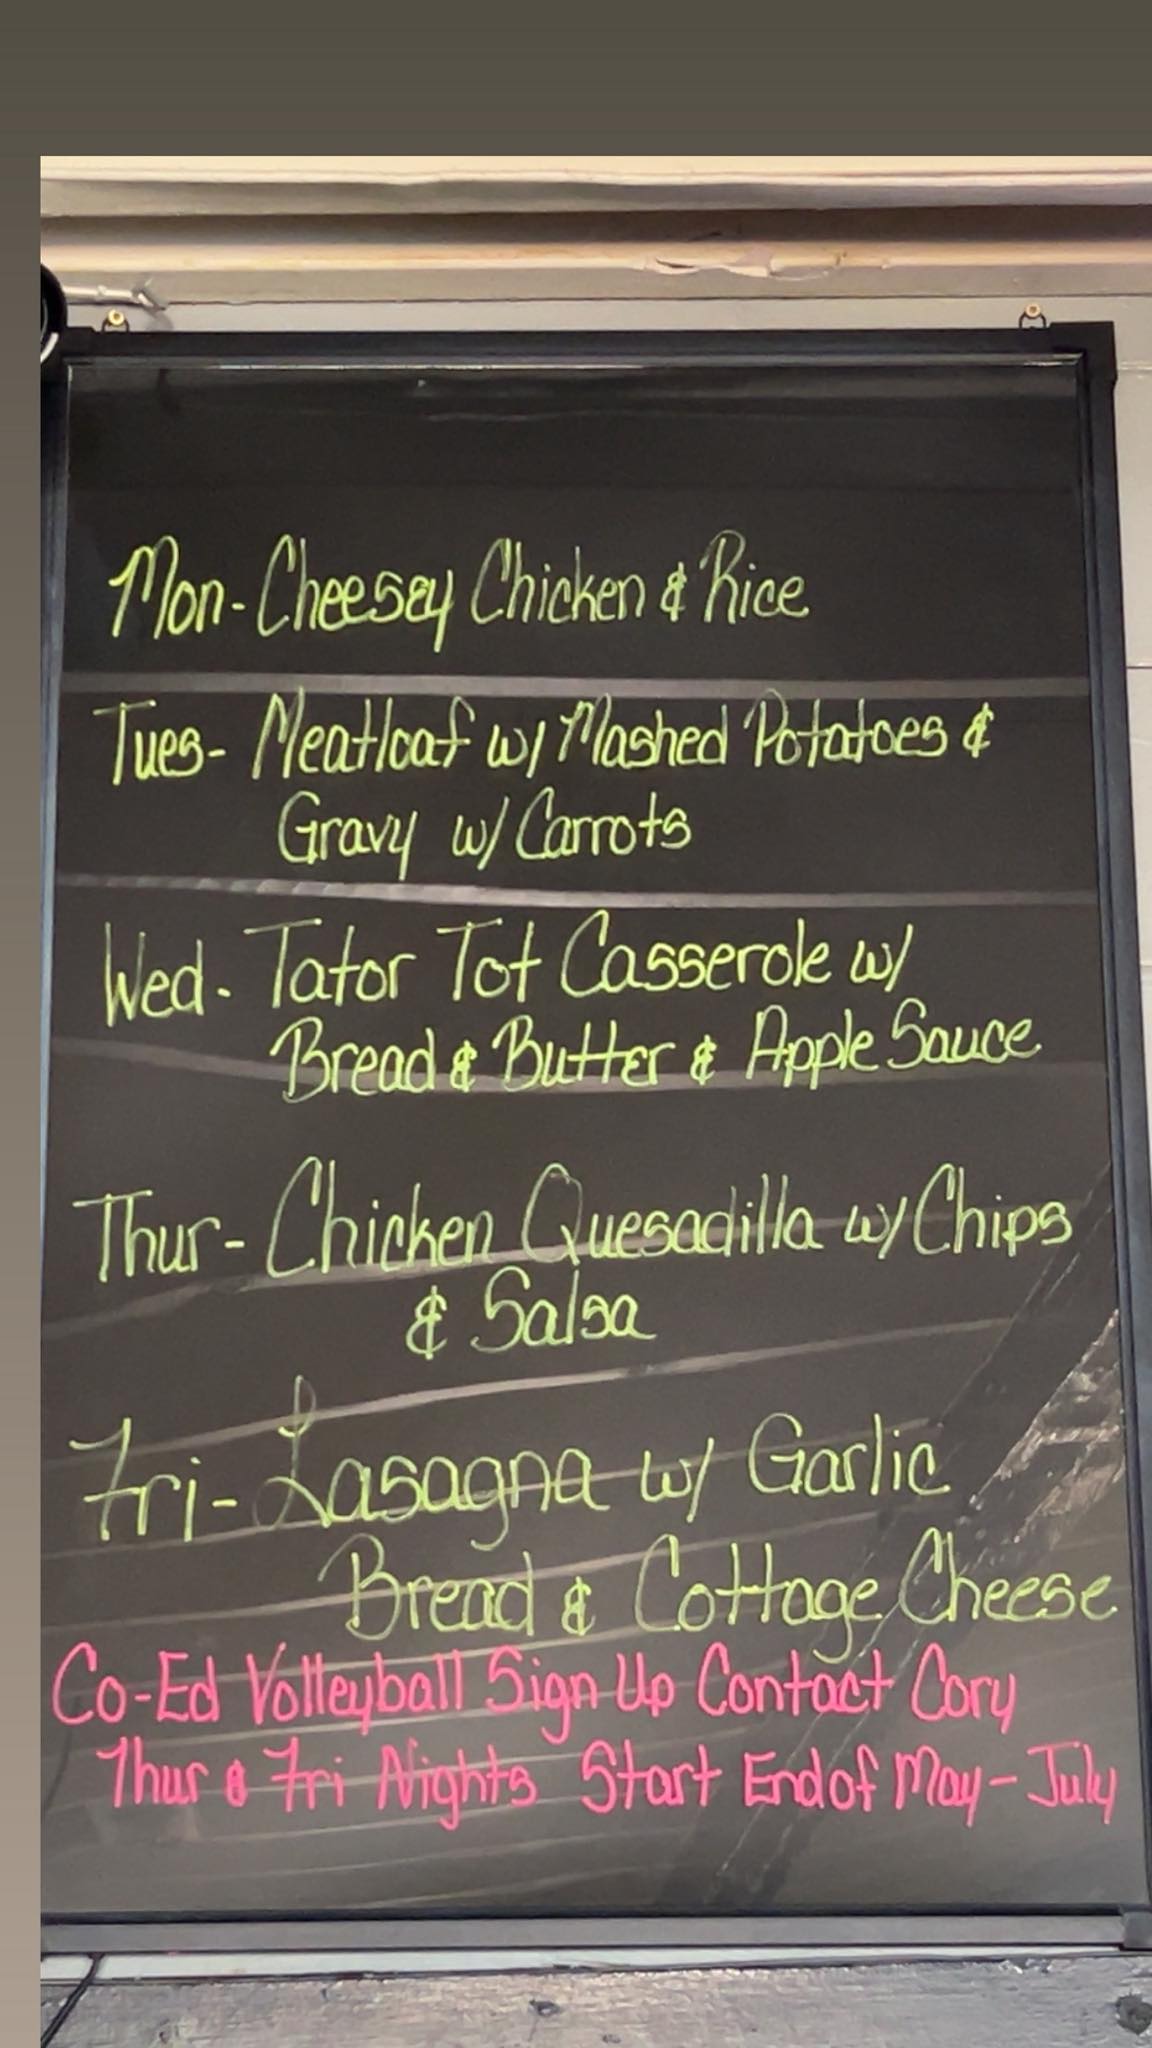 Mon- Cheesey Chicken & Rice
Tues- Meatloaf w/ Mashed Potatoes &
Gravy w/ Carrots
Wed. Tator Tot Casserole w/
Bread & Butter & Apple Sauce
Thur- Chicken Quesadilla w/ Chips
& Salsa
Fri- Lasagna w/ Garlic
Bread & Cottage Cheese
Co-Ed Volleyball Sign Up Contact Cory
Thur & Fri Nights Start End of May - July